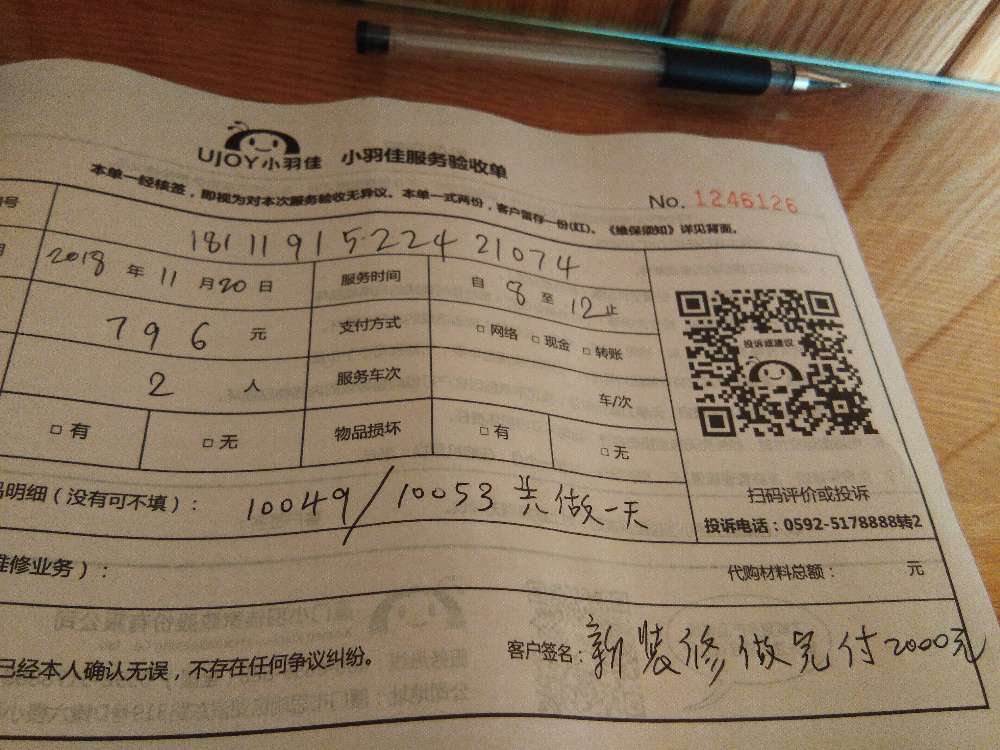 UJOY小羽佳 小羽佳服务验收单
本单一经核签，即视为对本次服务验收无异议。本单一式两份，客户留存一份(红)、《维保须知》详见背面。
No. 1246126
号 181119152242 1074
2018 年 11 月 20 日 服务时间 自 8 至 12 止
796 元 支付方式 □ 网络 □ 现金 □ 转账
2 人 服务车次 车/次
□ 有 □ 无 物品损坏 □ 有 □ 无
投诉或建议
扫码评价或投诉
投诉电话：0592-5178888转2
明细（没有可不填）： 10049/10053 共做一天
维修业务）： 代购材料总额： 元
已经本人确认无误，不存在任何争议纠纷。 客户签名： 新装修做完付2000元